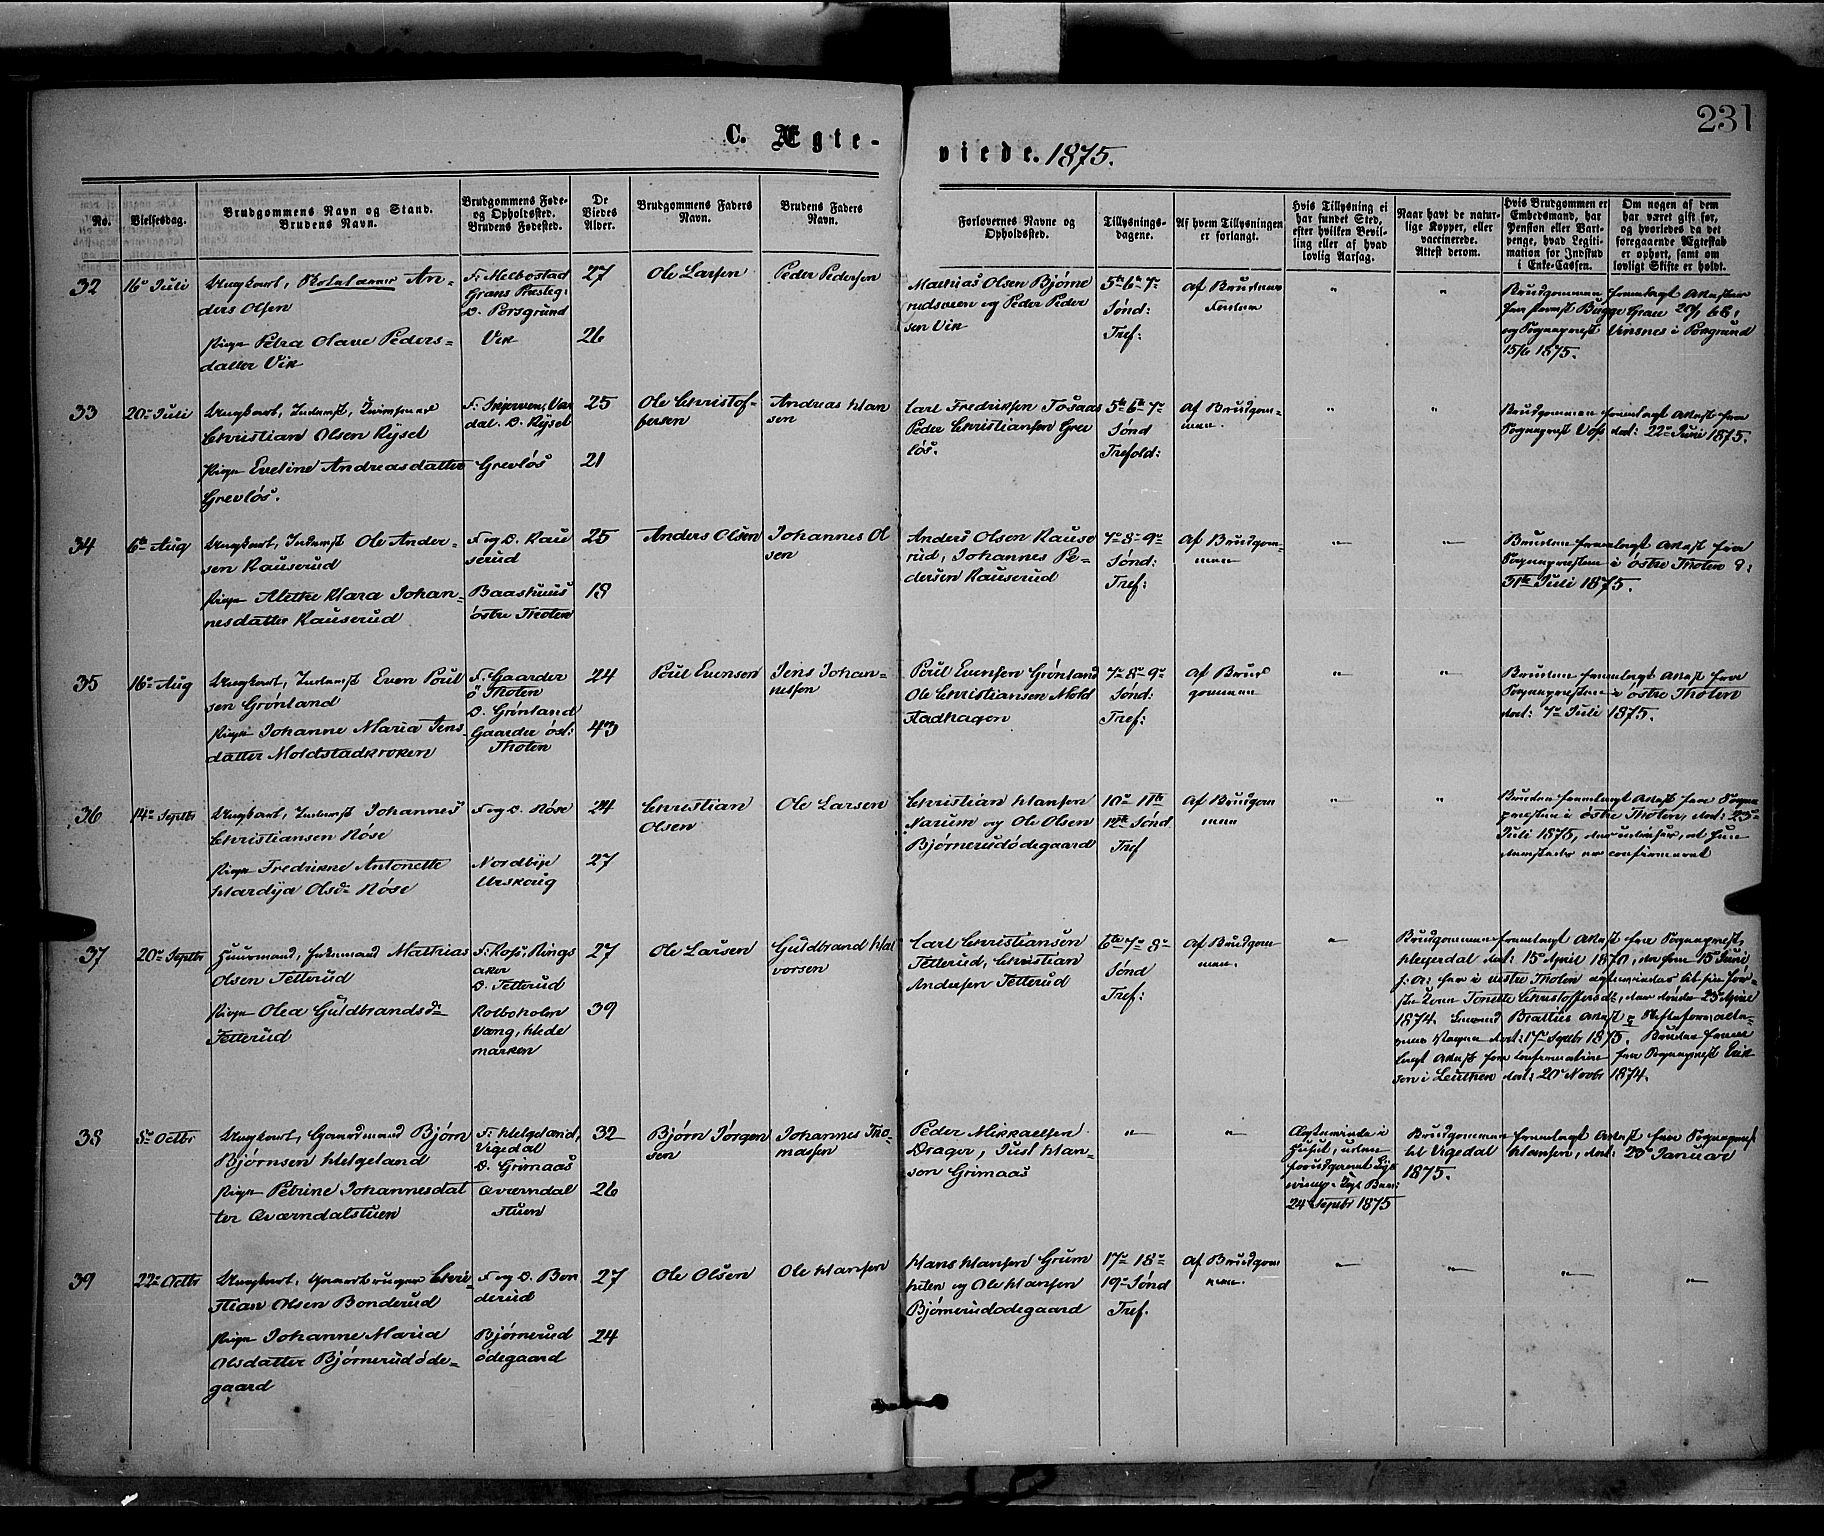 231
C. Ægte-
viede. 1875.
No.
Vielsesdag.
Brudgommens Navn og Stand.
Brudens Navn.
Brudgommens Føde-
og Opholdssted.
Brudens Fødested.
De
Viedes
Alder.
Brudgommens Faders
Navn.
Brudens Faders
Navn.
Forlovernes Navne og
Opholdssted.
Tillysnings-
dagene.
Af hvem Tillysningen
er forlangt.
Hvis Tillysning ei
har fundet Sted,
efter hvilken Bevil-
ling eller af hvad
lovlig Aarsag.
Naar havt de natur-
lige Kopper, eller
vaccinerede.
Attest derom.
Hvis Brudgommen er
Embedsmand, har
Pension eller Vart-
penge, hvad Legiti-
mation for Indskud
i Enke-Cassen.
Om nogen af dem
har været gift før,
og hvorledes da det
foregaaende Ægteskab
er ophørt, samt om
lovligt Skifte er holdt.
32
16de Juli
Ungkarl, An-
ders Olsen
Pige Petra Olave Peders-
datter Vik
F. Melbostad
Grans Præsteg:
O. Porsgrund
Vik
27
26
Ole Larsen
Peder Pedersen
Mathias Olsen Bjørne
rudsveen og Peder Peder
sen Vik
5te 6te 7de
Sønd:
Tref:
Af Brudens
"
"
Brudgommen fremlagt Attester
fra Bugge Gran 20/1 68,
og Sognepræst Vinsnes i Porsgrund
15/6 1875.
33
20de Juli
Ungkarl, Inderst,
Christian Olsen Rÿsel
Pige Eveline Andreasdatter
Grevløs.
F. Skjerven, Var
dal. O. Rÿsel
Grevløs
25
21
Ole Christof-
fersen
Andreas Han
sen
Carl Fredriksen Tosaas
Peder Christiansen Grev
løs.
5te 6te 7de
Sønd
Trefold:
Af Brudgom-
men.
"
"
Brudgommen fremlagt Attest fra
Sognepræst Voss dat: 22de Juni 1875.
34
6te Aug
Ungkarl, Inderst Ole Ander-
sen Rauserud
Pige Alethe Klara Johan-
nesdatter Rauserud
F og O. Rau
serud
Baashuus
østre Thoten
25
18
Anders Olsen
Johannes Ol
sen
Anders Olsen Rause
rud, Johannes Pe-
dersen Rauserud
7de 8de 9de
Sønd:
Tref:
Af Brudgom-
men
"
"
Bruden fremlagt Attest fra
Sognepræsten i østre Thoten d:
31te Juli 1875.
35
16de Aug
Ungkarl, Inderst Even Poul
sen Grønland
Pige Johanne Maria Jens-
datter Moldstadkroken
F. Gaarder
ø Thoten
O. Grønland
Gaarder øst:
Thoten
24
43
Poul Evensen
Jens Johan-
nessen
Poul Evensen Grønland
Ole Christiansen Mold
stadhagen
7de 8de 9de
Sønd:
Tref:
Af Brud
gommen
"
"
Bruden fremlagt Attest fra
Sognepræsten i østre Thoten
dat: 7de Juli 1875.
36
14de Septbr
Ungkarl, Inderst Johannes
Christiansen Røse
Pige Fredrikke Antonette
Hardÿa Olsd. Røse
F og O. Røse
Nordbÿe
Urskoug
24
27
Christian
Olsen
Ole Larsen
Christian Hansen
Narum og Ole Olsen
Bjørnerudødegaard
10de 11te
12te Sønd
Tref
Af Brudgom
men
"
"
Bruden fremlagt Attest fra Sogne-
præsten i østre Thoten, dat: 23de
Juli 1875, at hun
er confirmeret
37
20de Septbr
Huusmand, Mathias
Olsen Tetterud
Pige Olea Guldbrandsdr
Tetterud
F. Ringsaker
O. Tetterud
Kolboholen
Vang, Hede
marken
27
39
Ole Larsen
Guldbrand Hal
vorsen
Carl Christiansen
Tetterud, Christian
Andersen Tetterud
6te 7de 8de
Sønd
Tref:
Af Brudgom
men.
"
Brudgommen fremlagt Attest fra Sognepræst,
dat: 15de April 1870, 15de Juni
i vestre Thoten til sin før-
ste Kone Tonette Christoffersdr, der døde 23de April
1874. Attest
dat: 17de Septbr 1875. Bruden frem
lagt Attest for Confirmation fra Sognepræst Erik
sen i Leuthen dat: 20de Novbr 1874.
38
5te Octbr
Ungkarl, Gaardmand Bjørn
Bjørnsen Helgeland
Pige Petrine Johannesdat
ter Qværndalstuen
F. Helgeland,
Vigedal
O. Grimaas
Qværndal
stuen
32
26
Bjørn Jørgen
sen
Johannes Tho
massen
Peder Mikkaelsen
Drager, Just Han-
sen Grimaas
"
"
Ægtevinde i
Huset, uden
forudgaaet Lys
ning.
24de Septbr 1875
Brudgommen fremlagt Attest fra Sognepræst
til Vigedal Hansen, dat: 23de Januar
1875.
39
22de Octbr
Ungkarl, Gaardbruger Chri-
stian Olsen Bonderud
Pige Johanne Maria
Olsdatter Bjørnerudøde-
gaard
F og O. Bon
derud
Bjørnerud
ødegaard
27
24
Ole Olsen
Ole Hansen
Hans Hansen Grum
heten og Ole Hansen
Bjørnerudødegaard
17de 18de
19de Sønd
Tref.
Af Brudgom
men.
"
"
"
"